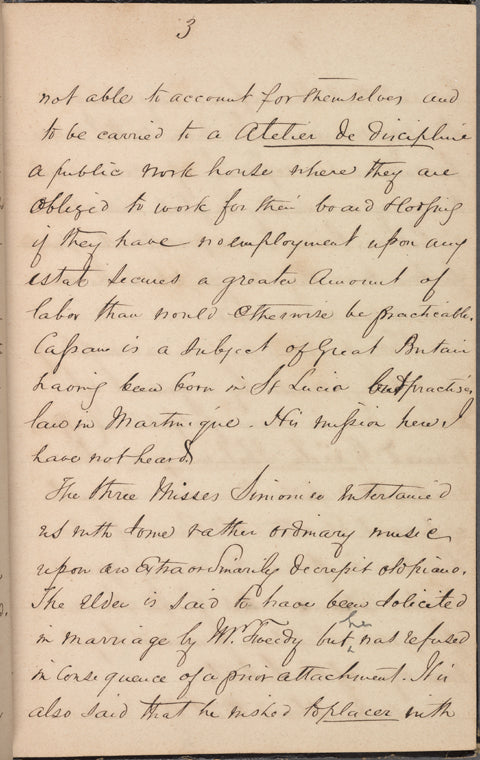 3
not able to account for themselves and
to be carried to a Atelier de discipline
a public work house where they are
obliged to work for their board & lodging
if they have no employment upon any
estate secures a greater amount of
labor than would otherwise be practicable.
is a subject of Great Britain
having been born in St Lucia but practises
law in Martinique. His mission here I
have not heard.
The three Misses entertained
us with some rather ordinary music
upon an extraordinarily decrepit old piano.
The elder is said to have been solicited
in marriage by Mr. Tweedy but her was refused
in consequence of a prior attachment. It is
also said that he wished to placer with